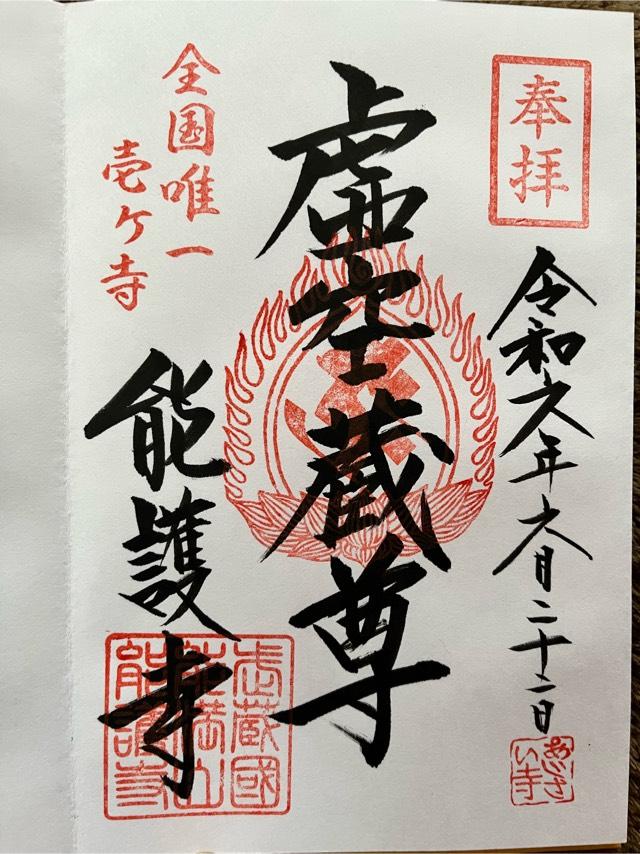 奉拝
令和六年六月二十二日
あじさい寺
虚空蔵尊
全国唯一
壱ケ寺
能護寺
武蔵國
能満山
能護寺